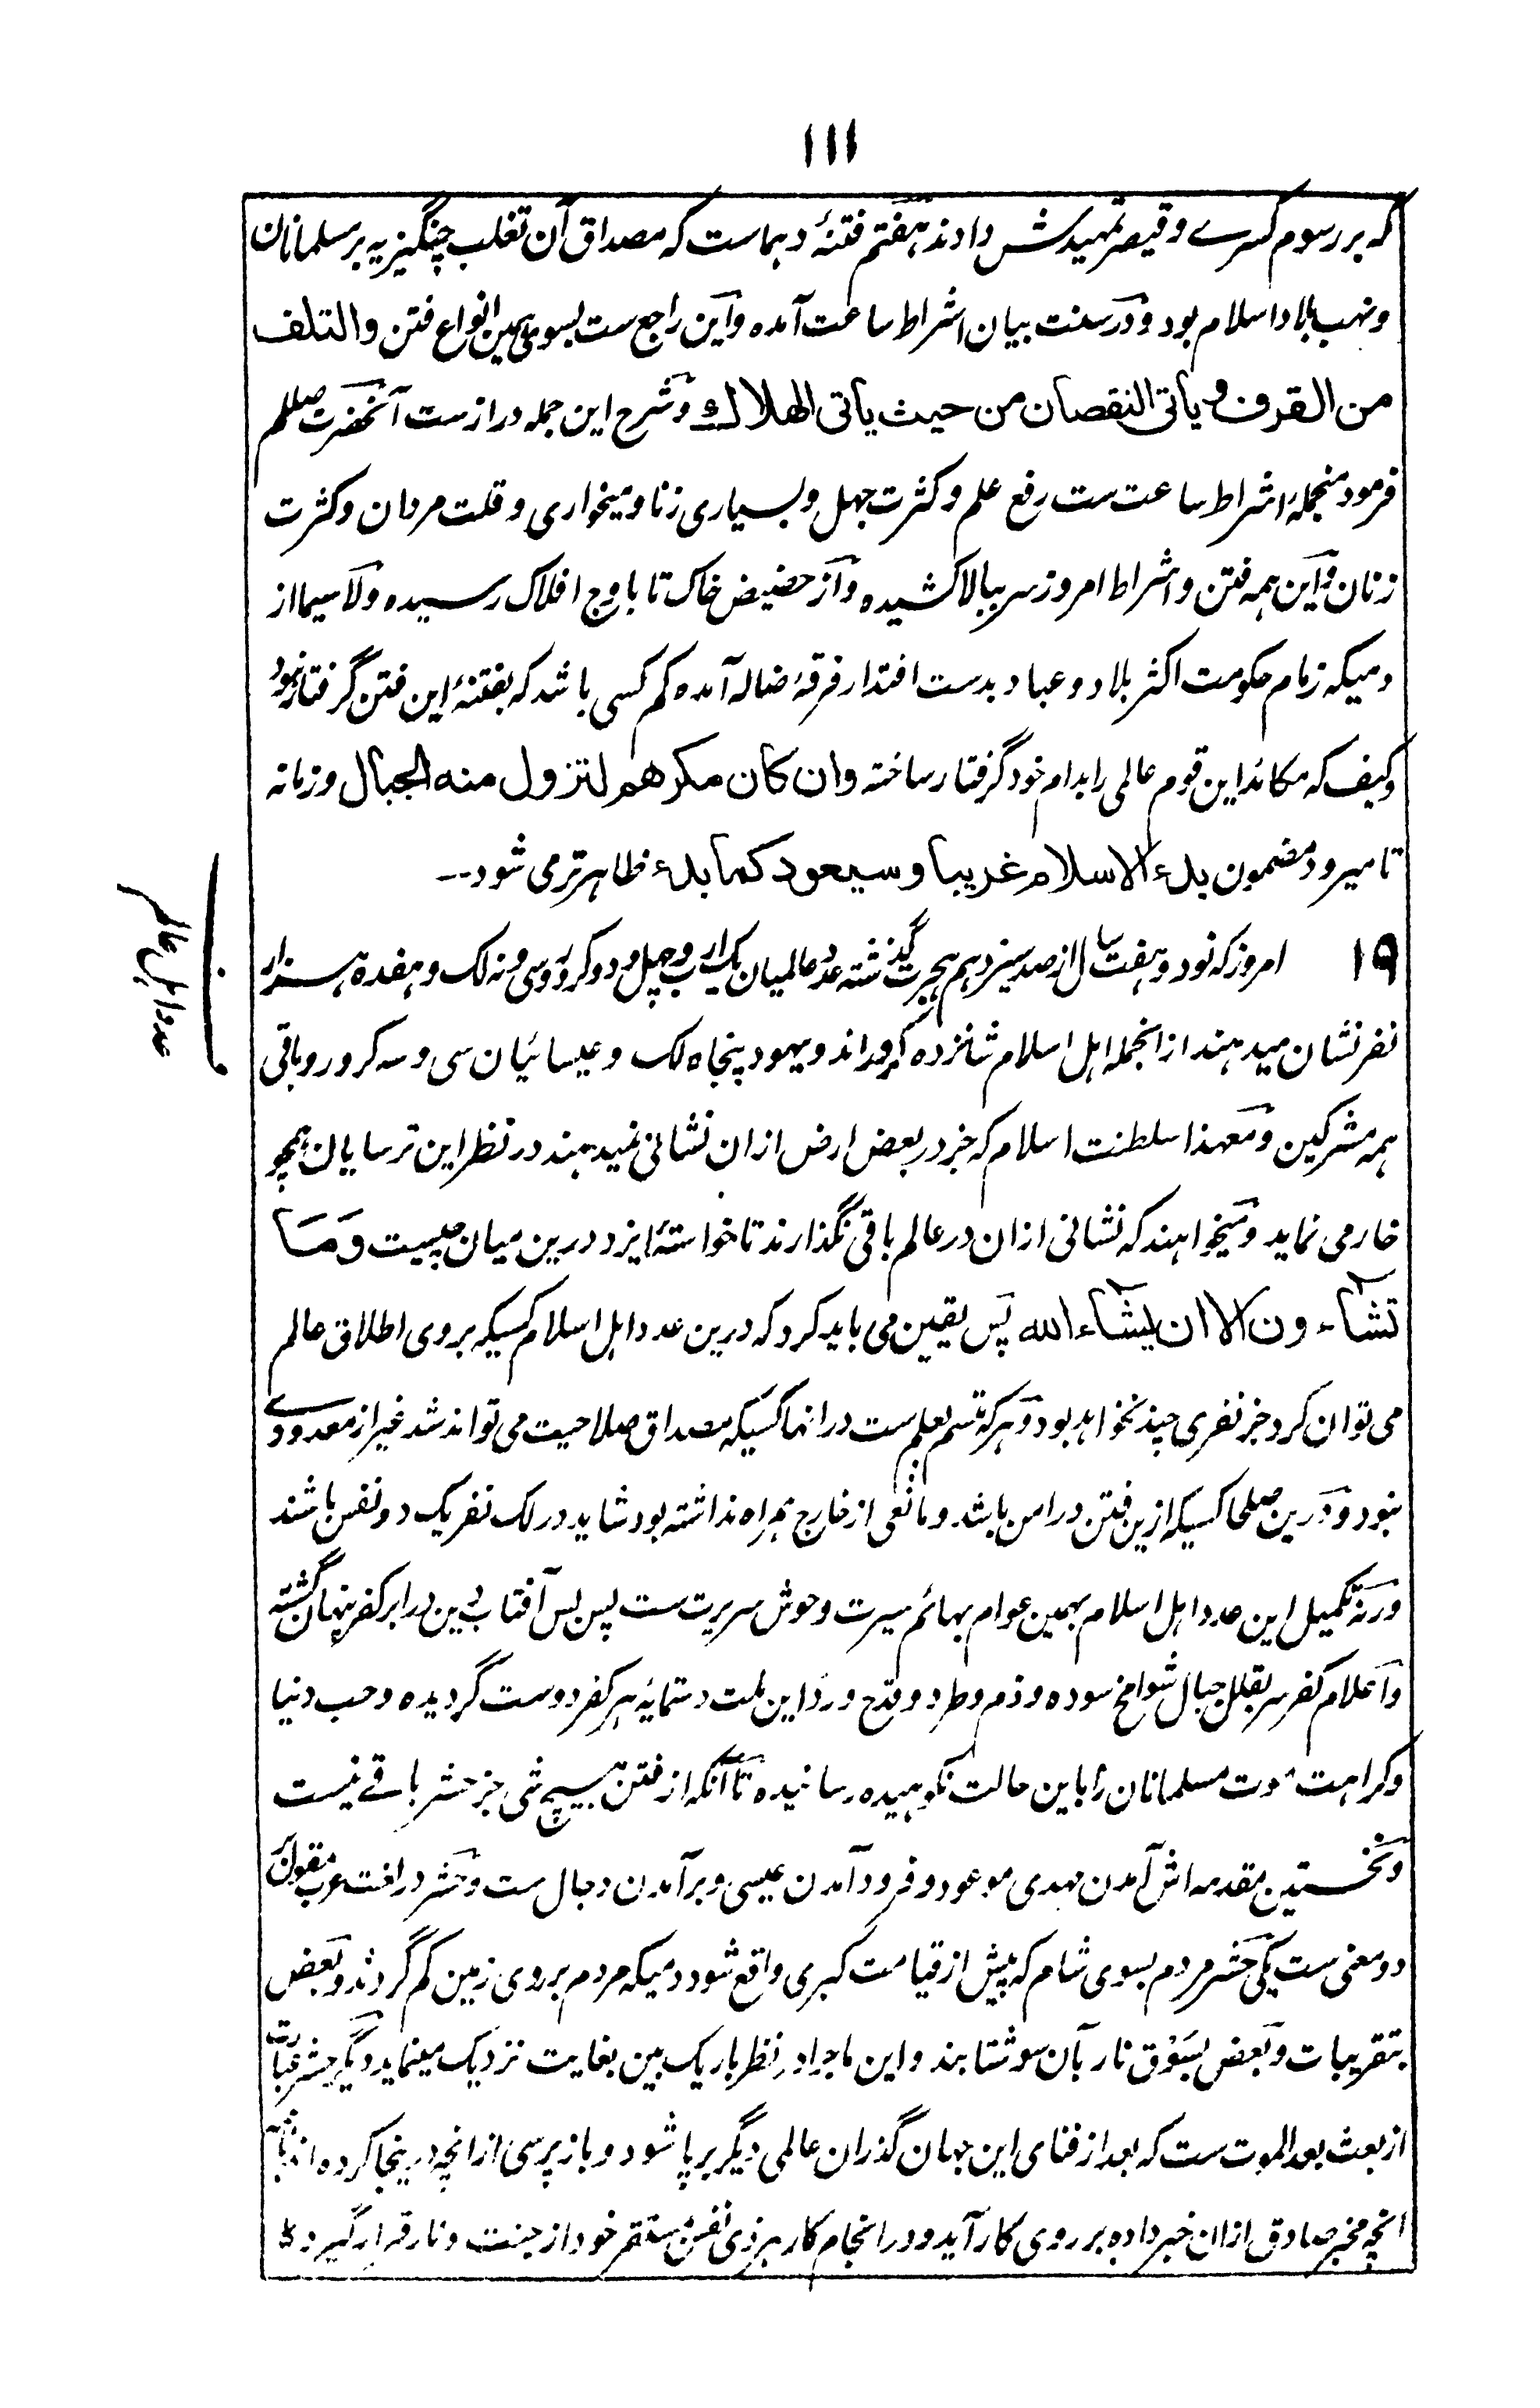 ۱۱۱
که بر رسوم کسرے و قیصر تمهیدش دادند هفتم فتنۀ دهماست که مصداق آن تغلب چنگیزیه بر مسلمانان
و نهب بلاد اسلام بود و در سنت بیان اشراط ساعت آمده و این راجع ست بسوی همین انواع فتن والتلف
من القرف و یأتی النقصان من حیث یأتی الهلاك و شرح این جمله دراز ست آنحضرت صللم
فرمود منجملۀ اشراط ساعت ست رفع علم و کثرت جهل و بسیاری زنا و میخواری و قلت مردان و کثرت
زنان و این همه فتن و اشراط امروز سر ببالا کشیده و از حضیض خاک تا باوج افلاک رسیده ولا سیما از
دمیکه زمام حکومت اکثر بلاد و عباد بدست اقتدار فرقۀ ضاله آمده کم کسی باشد که بفتنۀ این فتن گرفتار نبود
و کیف که مکائد این قوم عالمی را بدام خود گرفتار ساخته وان کان مکرهم لتزول منه الجبال و زمانه
تا میرود مضمون بدء الاسلام غریبا وسیعود کما بدء ظاهر تر می شود --
۱۹ امروز که نود و هفت سال از صد سیزدهم هجرت گذشته عدد عالمیان یک ارب و چهل و دو کرور و سی و نه لک و هفده هزار
عدد اهل عالم
نفر نشان میدهند از انجمله اهل اسلام شانزده کرور اند و یهود پنجاه لک و عیسائیان سی و سه کرور و باقی
همه مشرکین و معهذا سلطنت اسلام که جز در بعض ارض ازان نشانی نمیدهند در نظر این ترسایان همچو
خار می نماید و میخواهند که نشانی ازان در عالم باقی نگذارند تا خواستۀ ایزد درین میان چیست وَمَا
تشاءون الا ان یشاء الله پس یقین می باید کرد که درین عدد اهل اسلام کسیکه بروی اطلاق عالم
می توان کرد جز نفری چند نخواهد بود و هر که متسم بعلم ست در انها کسیکه مصداق صلاحیت می تواند شد غیر از معدودے
نبود و درین صلحا کسیکه ازین فتن در امن باشد و مانعی از خارج همراه نداشته بود شاید در لک نفر یک دو نفس باشند
ورنه تکمیل این عدد اهل اسلام بهمین عوام بهائم سیرت وحوش سریرت ست پس بس آفتاب دین در ابر کفر پنهان گشته
و اعلام کفر سر بقلل جبال شوامخ سوده و ذم و طرد و قدح و رد این ملت دستمایۀ هر کفر دوست گردیده و حب دنیا
و کراهت موت مسلمانان را باین حالت نکوهیده رسانیده تا آنکه از فتن هیچ شی جز حشر باقے نیست
و نخستین مقدمه اش آمدن مهدی موعود و فرود آمدن عیسی و برآمدن دجال ست و حشر در لغت عرب مقول بر
دو معنی ست یکی حشر مردم بسوی شام که پیش از قیامت کبری واقع شود دمیکه مردم بر روی زمین کم گردند و بعض
بتقریبات و بعض بسَوْق نار بآن سو شتابند و این ماجرا در نظر باریک بین بغایت نزدیک مینماید دیگر حشر عبارت
از بعث بعد الموت ست که بعد از فنای این جهان گذران عالمی دیگر بر پا شود و باز پرسی از انچه در ینجا کرده اند
انچه مخبر صادق ازان خبر داده بر روی کار آید و در انجام کار هر ذی نفس مستقر خود از جنت و نار قرار گیرد